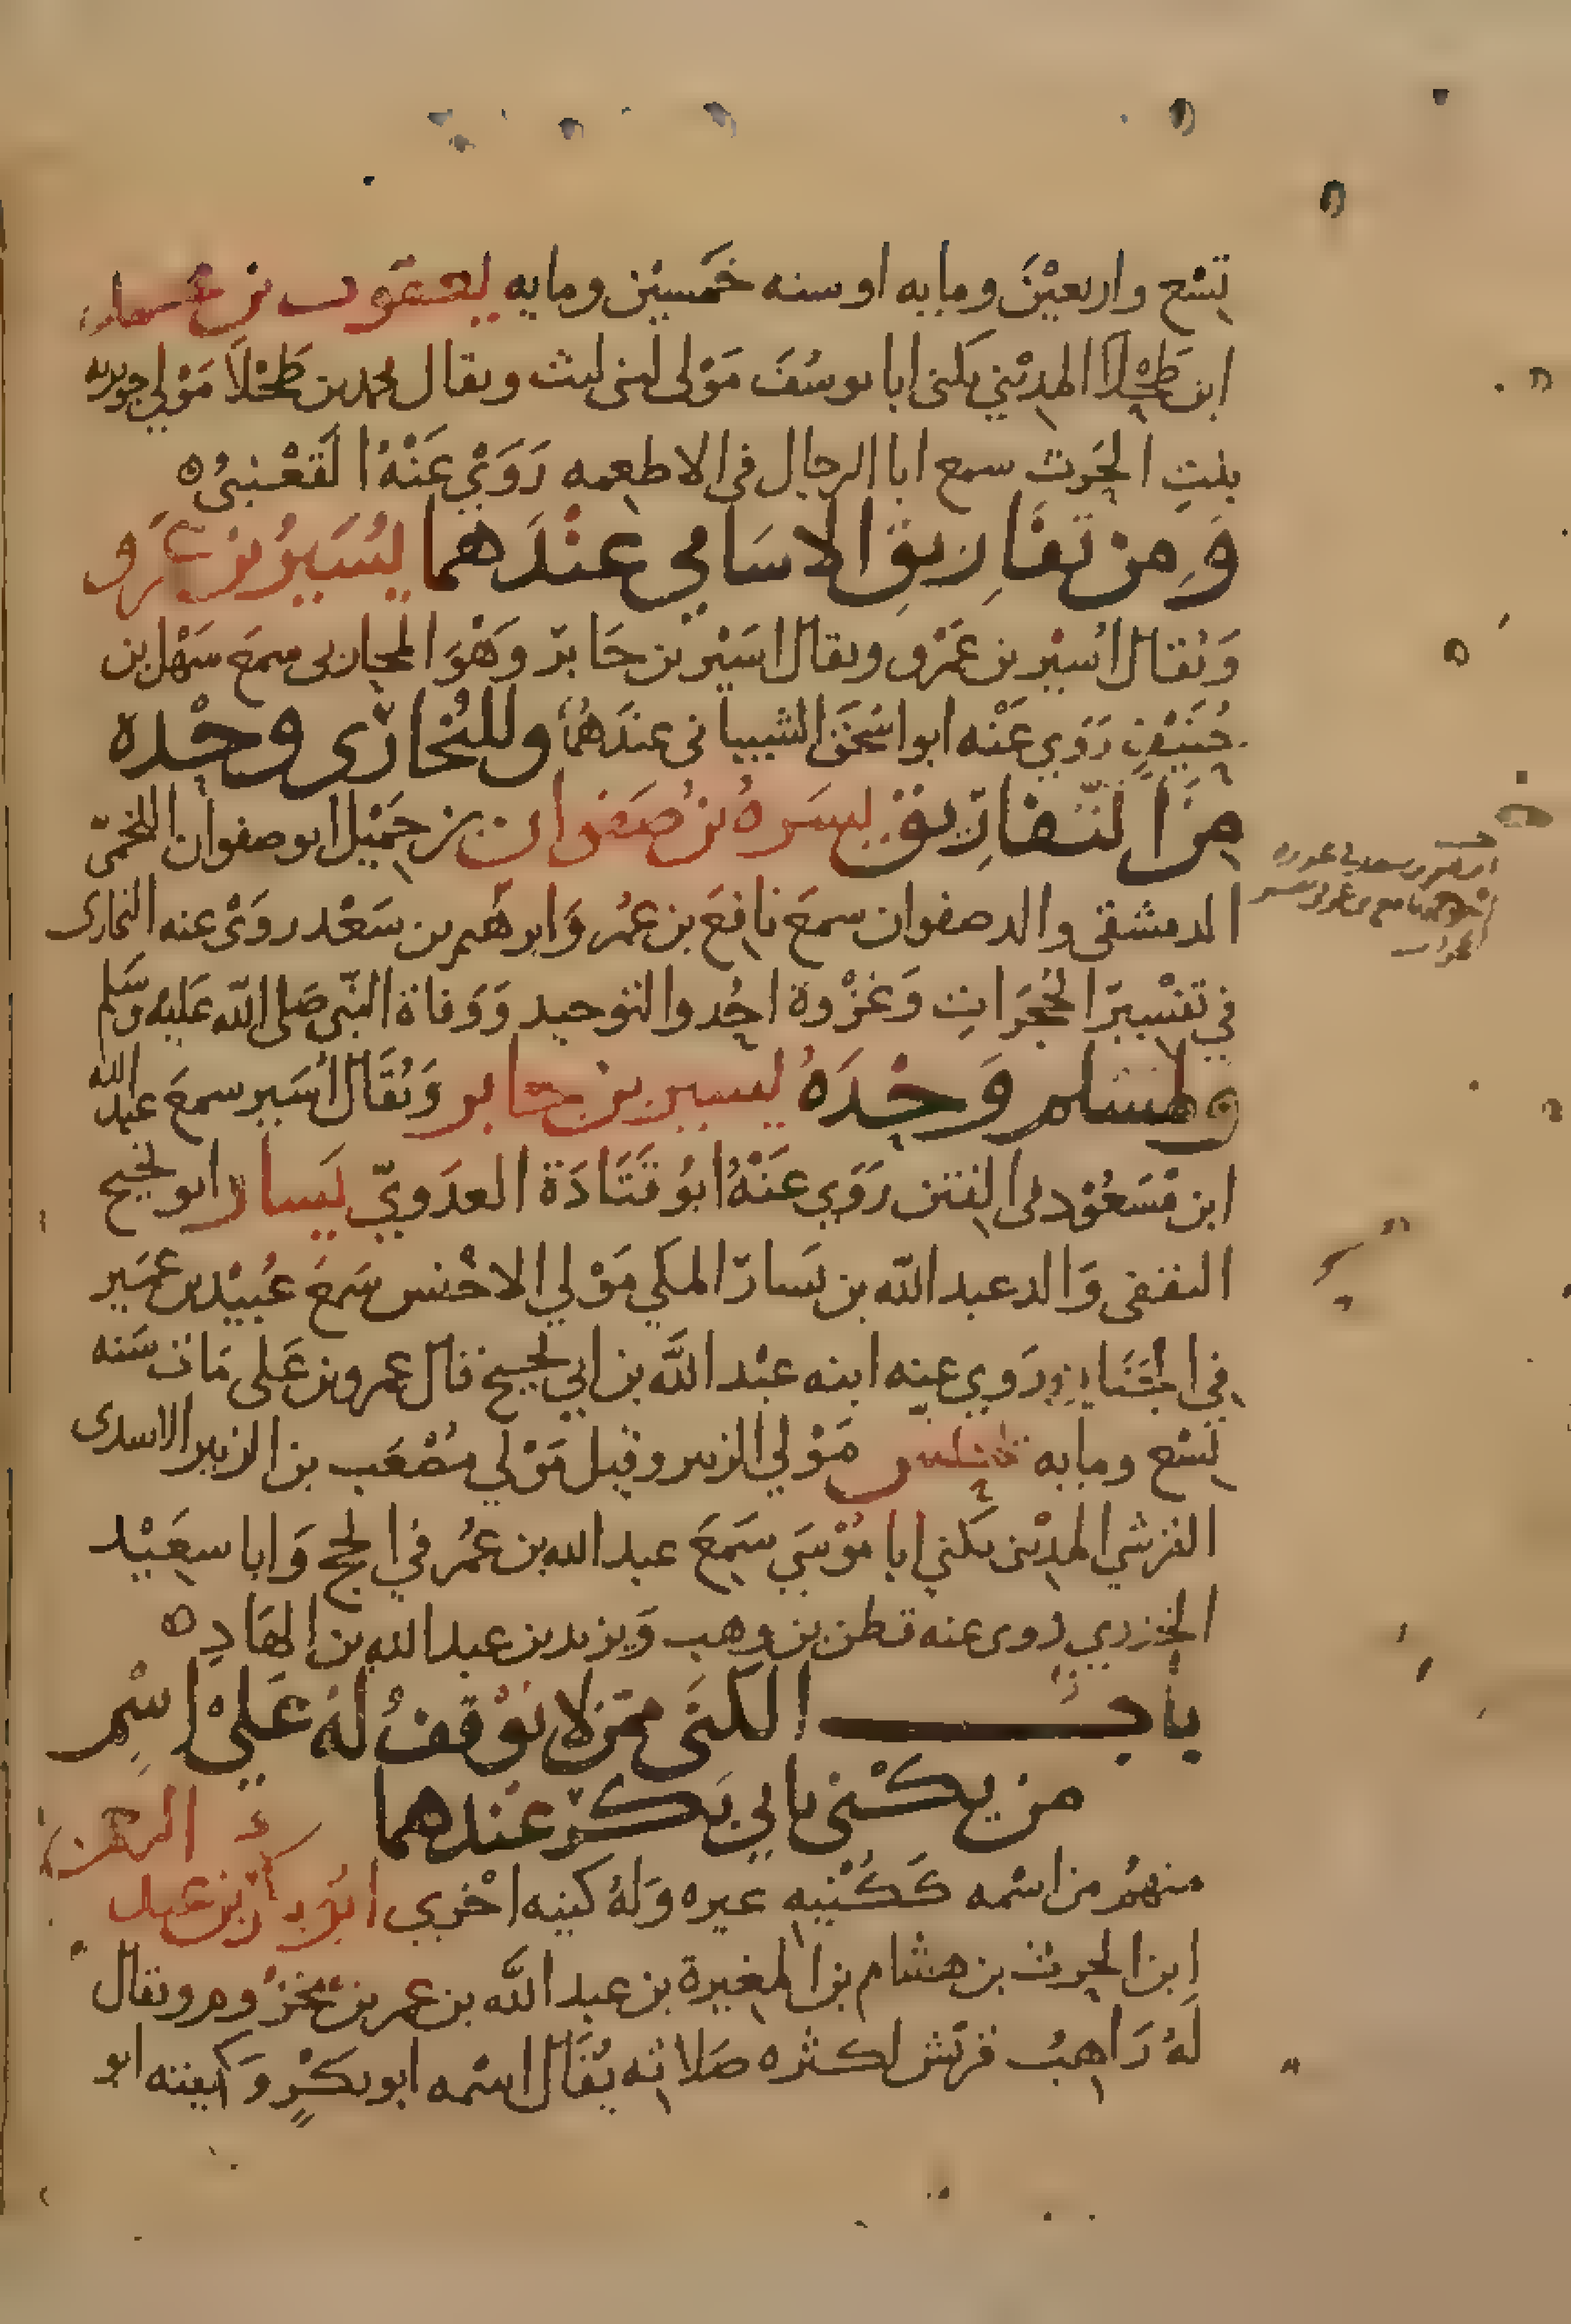 تسع واربعين ومايه او سنه خمسين ومايه يعقوب بن محمد
ابن طحلا المديني يكنى ابا يوسف مولى لبنى ليث ويقال محمد بن طحلا مولي جويريه
بنت الحرث سمع ابا الرجال في الاطعمه روي عنه القعنبي ه
ومن تفاريق الاسامي عندهما يسير بن عمرو
ويقال اسير بن عمرو ويقال اسير بن جابر وهو المحاربى سمع سهل بن
حنيف روي عنه ابو اسحق الشيبانى عندهما وللبخارى وحده
من التفاريق يسره بن صفوان بن جميل ابو صفوان اللخمي
الدمشقى والد صفوان سمع نافع بن عمر وابرهيم بن سعد روى عنه البخارى
في تفسير الحجرات وغزوة احد والتوحيد ووفاة النبي صلى الله عليه وسلم
ولمسلم وحده يسير بن جابر ويقال اسير سمع عبد الله
ابن مسعود في الفتن روي عنه ابو قتادة العدوي يسار ابو نجيح
الثقفى والد عبد الله بن يسار المكي مولي الاخنس سمع عبيد بن عمير
في روي عنه ابنه عبد الله بن ابي نجيح قال عمرو بن على مات سنه
تسع ومايه يحنس مولي الزبير وقيل مولي مصعب بن الزبير الاسدى
القرشي المديني يكني ابا موسي سمع عبد الله بن عمر في الحج وابا سعيد
الخدري روى عنه قطن بن وهب ويزيد بن عبد الله بن الهاد ه
باب الكنى ممن لا نوقف له علي اسم
من يكنى بابي بكر عندهما
منهم من اسمه ككنيه غيره وله كنيه اخري ابو بكر بن عبد الرحمن
ابن الحرث بن هشام بن المغيرة بن عبد الله بن عمر بن مخزوم ويقال
له راهب قريش لكثره صلاته يقال اسمه ابو بكر وكنيته ابو